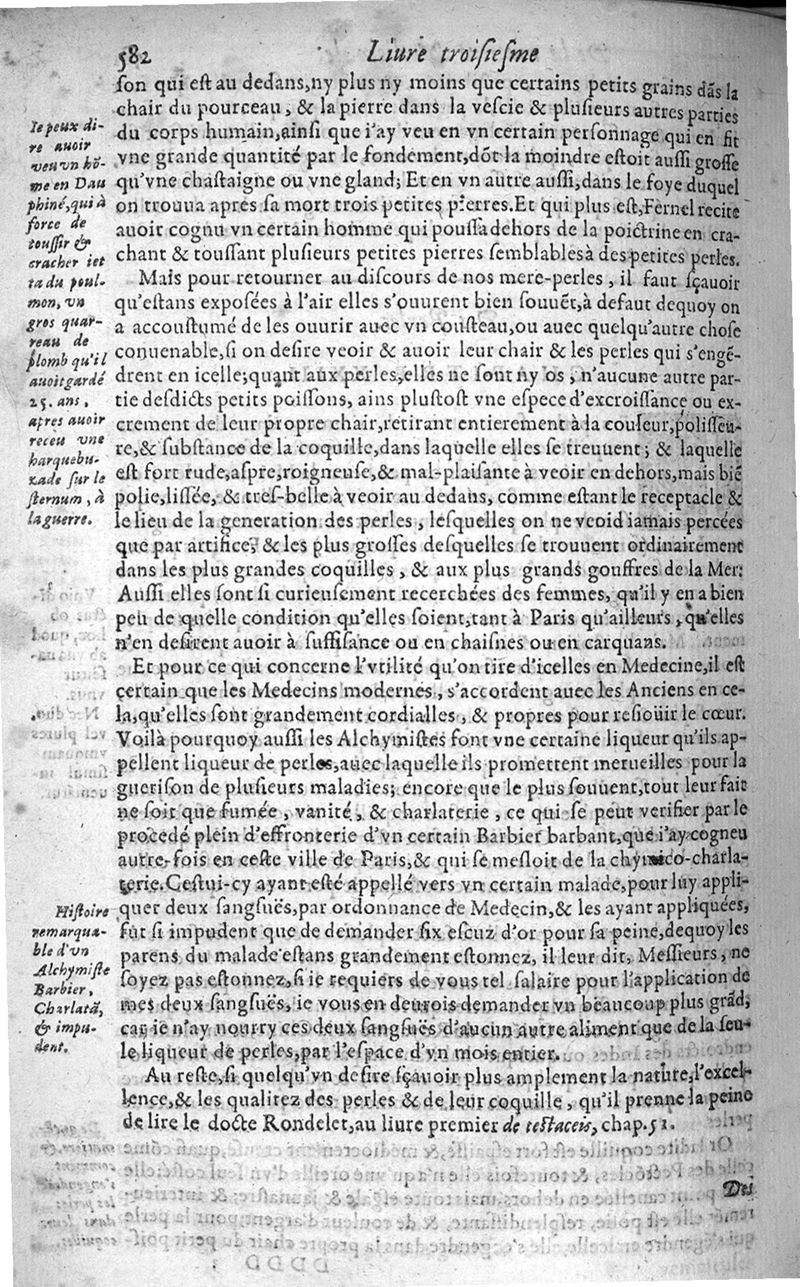 582 Liure troisiesme
son qui est au dedans,ny plus ny moins que certains petits grains dās la
chair du pourceau, & la pierre dans la vescie & plusieurs autres parties
du corps humain,ainsi que i'ay veu en vn certain personnage qui en fit
vne grande quantité par le fondement,dōt la moindre estoit aussi grosse
qu'vne chastaigne ou vne gland; Et en vn autre aussi,dans le foye duquel
on trouua apres sa mort trois petites pierres.Et qui plus est,Fernel recite
auoir cognu vn certain homme qui poussa dehors de la poictrine en cra-
chant & toussant plusieurs petites pierres semblables à des petites perles.
Ie peux di-
re auoir
veu vn hō-
me en Dau
phiné,qui à
force de
toussir &
cracher iet
ta du poul-
mon, vn
gros quar-
reau de
plomb qu'il
auoit gardé
25. ans,
apres auoir
receu vne
harquebu-
zade sur le
sternum, à
la guerre.
Mais pour retourner au discours de nos mere-perles, il faut sçauoir
qu'estans exposées à l'air elles s'ouurent bien souuēt,à defaut dequoy on
a accoustumé de les ouurir auec vn cousteau,ou auec quelqu'autre chose
conuenable,si on desire veoir & auoir leur chair & les perles qui s'engē-
drent en icelle;quant aux perles,elles ne sont ny os, n'aucune autre par-
tie desdicts petits poissons, ains plustost vne espece d'excroissance ou ex-
crement de leur propre chair,retirant entierement à la couleur,polisseu-
re,& substance de la coquille,dans laquelle elles se treuuent; & laquelle
est fort rude,aspre,roigneuse,& mal-plaisante à veoir en dehors,mais biē
polie,lissée, & tres-belle à veoir au dedans, comme estant le receptacle &
le lieu de la generation des perles, lesquelles on ne veoid iamais percées
que par artifice, & les plus grosses desquelles se trouuent ordinairement
dans les plus grandes coquilles, & aux plus grands gouffres de la Mer:
Aussi elles sont si curieusement recerchées des femmes, qu'il y en a bien
peu de quelle condition qu'elles soient,tant à Paris qu'ailleurs, qu'elles
n'en desirent auoir à suffisance ou en chaisnes ou en carquans.
Et pour ce qui concerne l'vtilité qu'on tire d'icelles en Medecine,il est
certain que les Medecins modernes, s'accordent auec les Anciens en ce-
la,qu'elles sont grandement cordialles, & propres pour resioüir le cœur.
Voilà pourquoy aussi les Alchymistes font vne certaine liqueur qu'ils ap-
pellent liqueur de perles,auec laquelle ils promettent merueilles pour la
guerison de plusieurs maladies; encore que le plus souuent,tout leur fait
ne soit que fumée, vanité, & charlaterie, ce qui se peut verifier par le
procedé plein d'effronterie d'vn certain Barbier barbant,que i'ay cogneu
autre-fois en ceste ville de Paris,& qui se mesloit de la chymico-charla-
terie.Cestui-cy ayant esté appellé vers vn certain malade,pour luy appli-
quer deux sangsuës,par ordonnance de Medecin,& les ayant appliquées,
fut si impudent que de demander six escuz d'or pour sa peine,dequoy les
parens du malade estans grandement estonnez, il leur dit, Messieurs, ne
soyez pas estonnez,si ie requiers de vous tel salaire pour l'application de
mes deux sangsuës, ie vous en deurois demander vn beaucoup plus grād,
car ie n'ay nourry ces deux sangsuës d'aucun autre aliment que de la seu-
le liqueur de perles,par l'espace d'vn mois entier.
Histoire
remarqua-
ble d'vn
Alchymiste
Barbier,
Charlatā,
& impu-
dent.
Au reste,si quelqu'vn desire sçauoir plus amplement la nature,l'excel-
lence,& les qualitez des perles & de leur coquille, qu'il prenne la peine
de lire le docte Rondelet,au liure premier de testaceis, chap.51.
Des